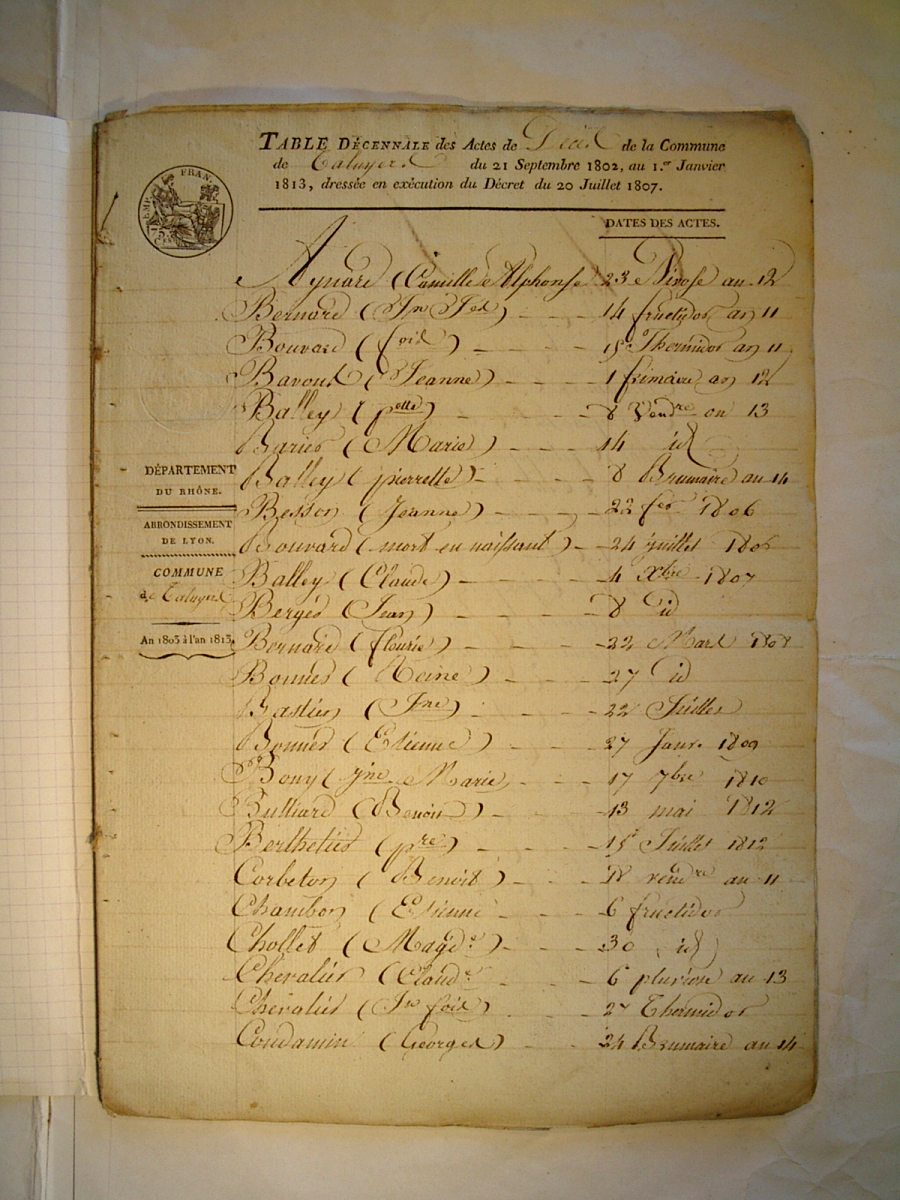 TABLE DÉCENNALE des Actes de Décès de la Commune
de Taluyers du 21 Septembre 1802, au 1.er Janvier
1813, dressée en exécution du Décret du 20 Juillet 1807.
EMP. FRAN.
75
CEN
DATES DES ACTES.
Aynard (Camille Alphonse 23 Nivose an 12
Bernard (Jn Jh) 14 fructidor an 11
Bouvard (fois) 15 Thermidor an 11
Baroud (Jeanne) 1 frimaire an 12
Balley (pette) 8 Vendre an 13
Barier (Marie) 14 id
Balley (pierrette) 8 Brumaire an 14
DÉPARTEMENT
DU RHÔNE.
Besson (Jeanne) 22 fer 1806
ARRONDISSEMENT
DE LYON.
Bouvard (mort en naissant) 24 juillet 1806
COMMUNE
de Taluyers
Balley (Claude) 4 Xbre 1807
Bergér (Jean) 8 id
An 1803 à l'an 1813.
Bernard (fleurie) 22 Mars 1808
Bonnier (Reine) 27 id
Bastien (Jne) 22 Juillet
Bonnier (Etienne) 27 Janr. 1809
Bony (Jne Marie) 17 7bre 1810
Bulliard (Benoit) 13 mai 1812
Berthelier (pre) 15 Juillet 1812
Corbeton (Benoit) 18 vendre an 11
Chambon (Etienne 6 fructidor
Chollet (Magde) 30 id
Chevalier (Claude 6 pluviose an 13
Chevalier (Jn fois) 27 Thermidor
Condamin (Georges) 24 Brumaire an 14